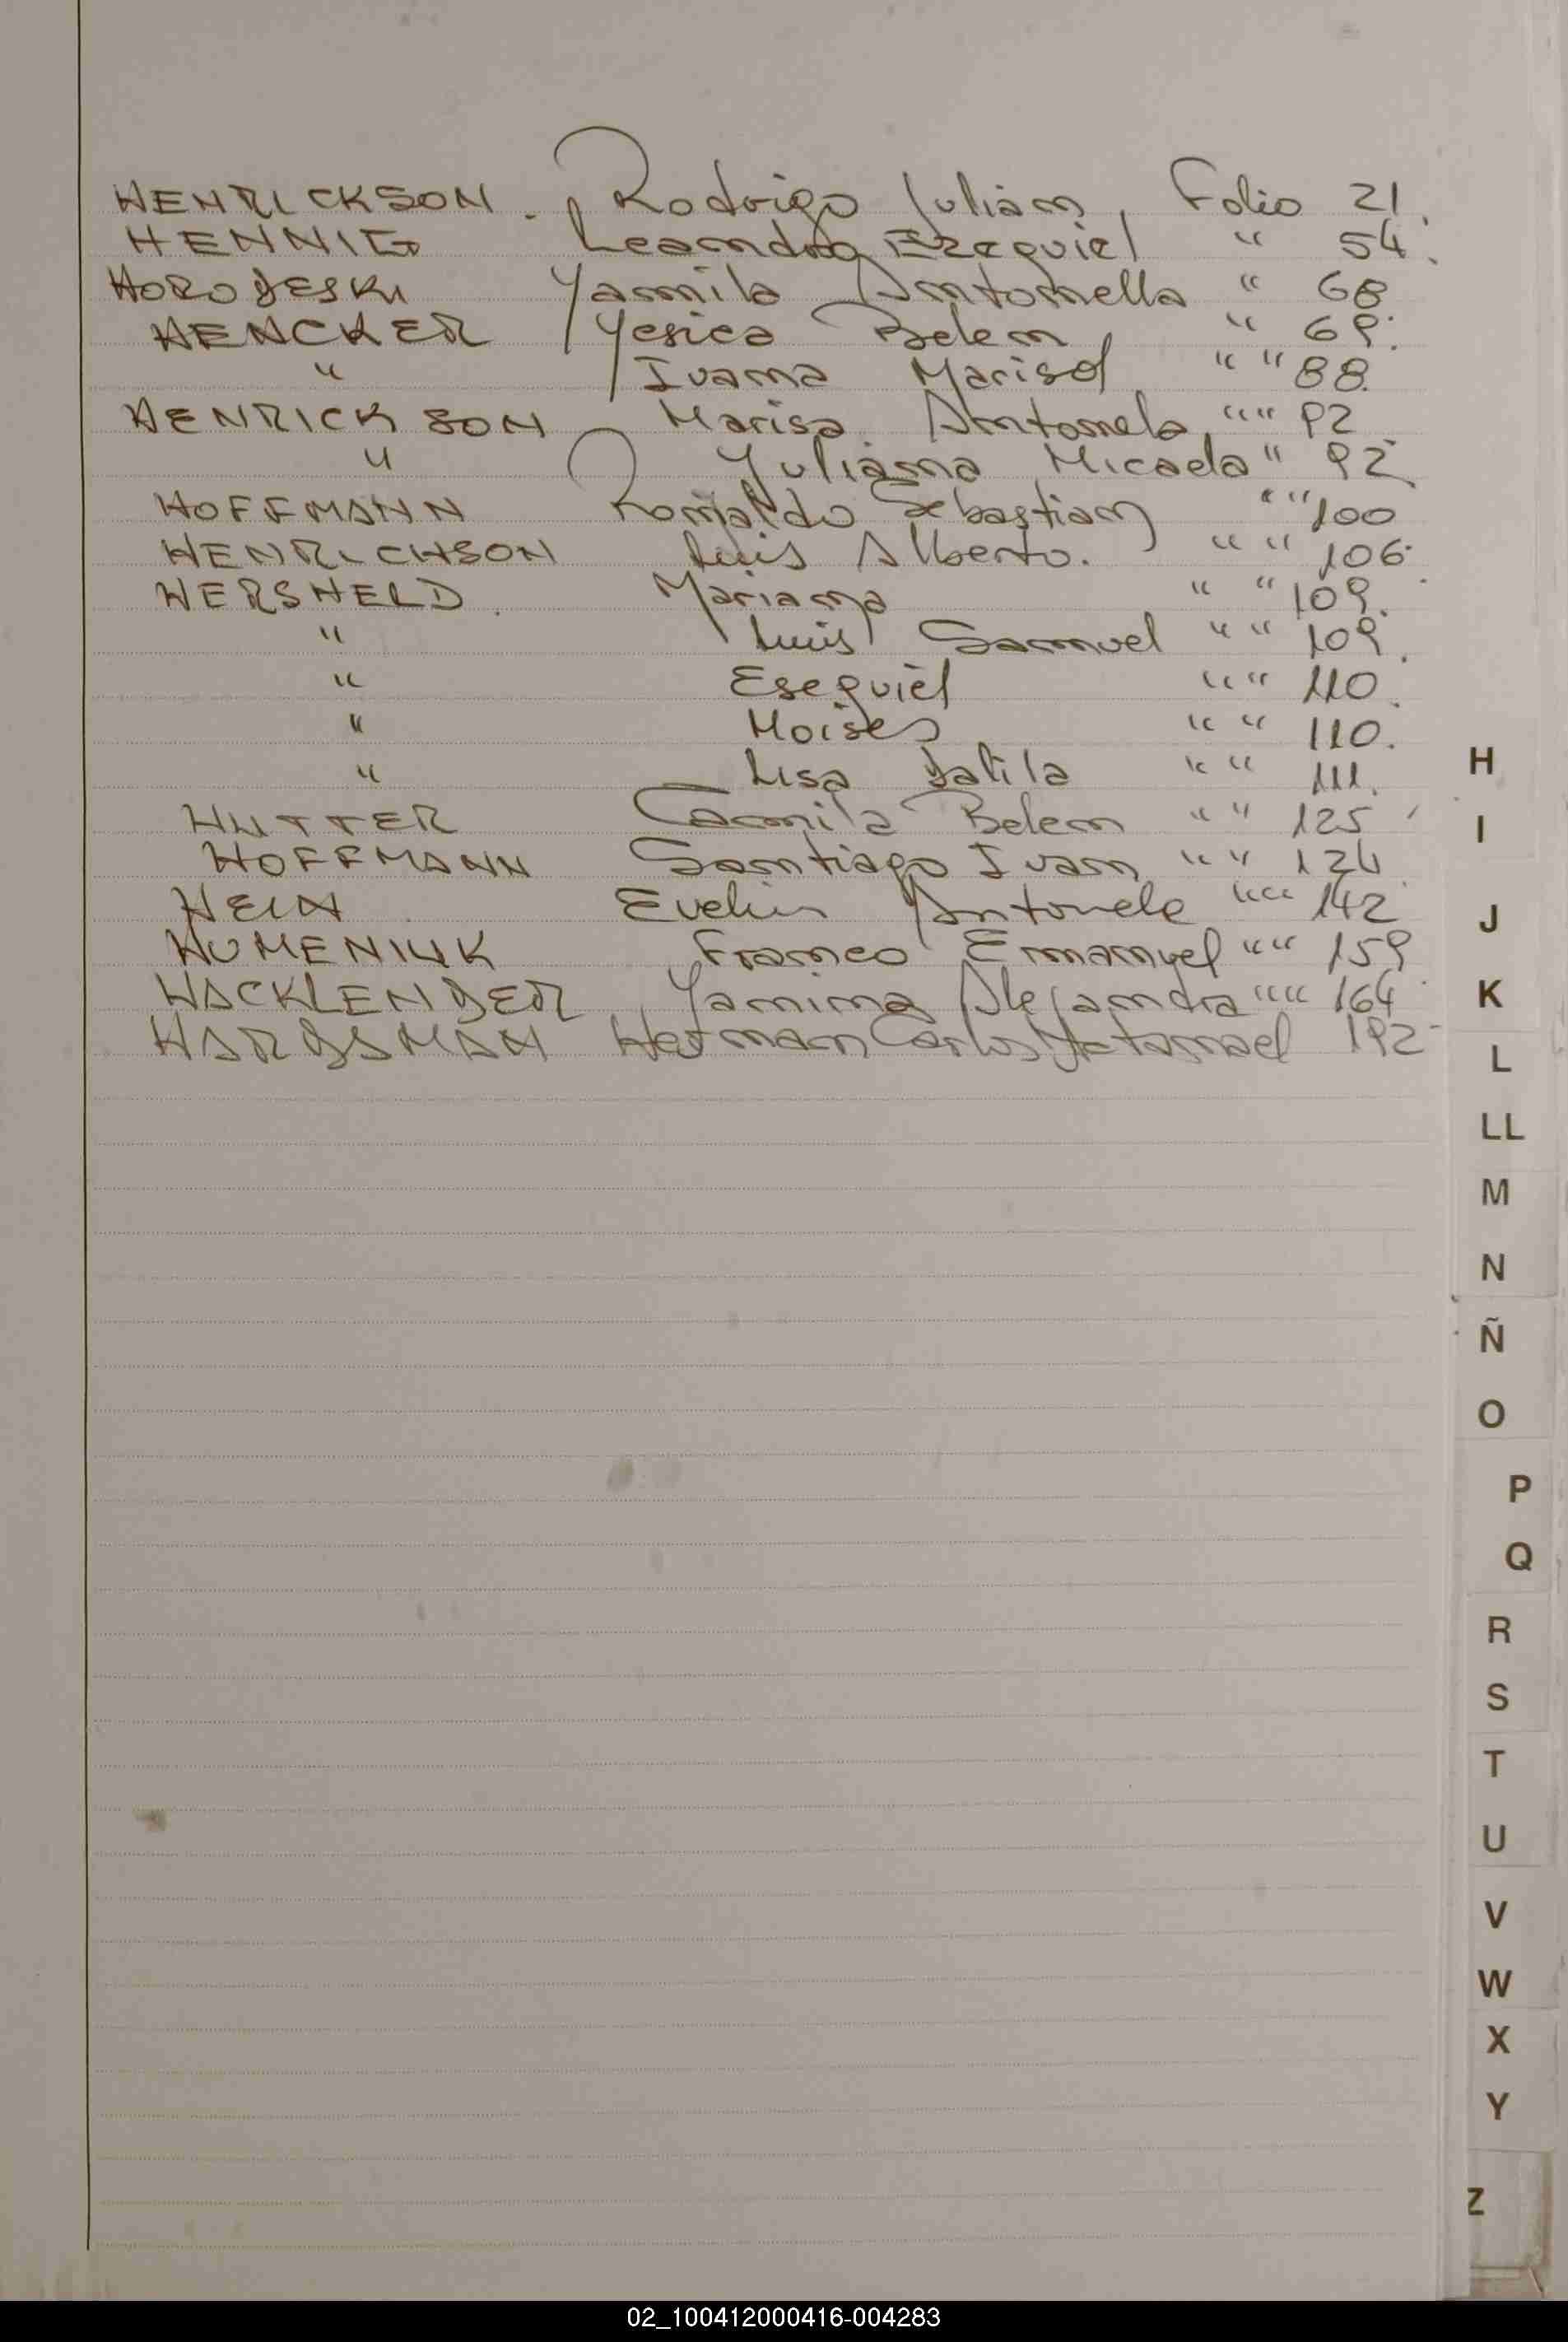 HENRICKSON. Rodrigo Julian, Folio 21.
HENNIG Leandro Ezequiel " 54.
HORODESKI Yamila Antonella " 68
HENCKER Yesica Belen " 69.
" Ivana Marisol " " 88.
HENRICKSON Marisa Antonela " " 92
" Yuliana Micaela " 92
HOFFMANN Romaldo Sebastian " " 100
HENRICHSON Luis Alberto. " " 106
HERSHELD. Mariana " " 109.
" Luis Samuel " " 109.
" Esequiel " " 110.
" Moises " " 110.
" Lisa Dalila " " 111.
HUTTER Camila Belen " " 125
HOFFMANN Santiago Ivan " " 124
HEIN Evelin Antonela " " 142
HUMENIUK Franco Emanuel " " 159
HACKLENDER Yanina Alejandra " " 164
HARDSMAN Herman Carlos 192
H
I
J
K
L
LL
M
N
Ñ
O
P
Q
R
S
T
U
V
W
X
Y
Z
02_100412000416-004283